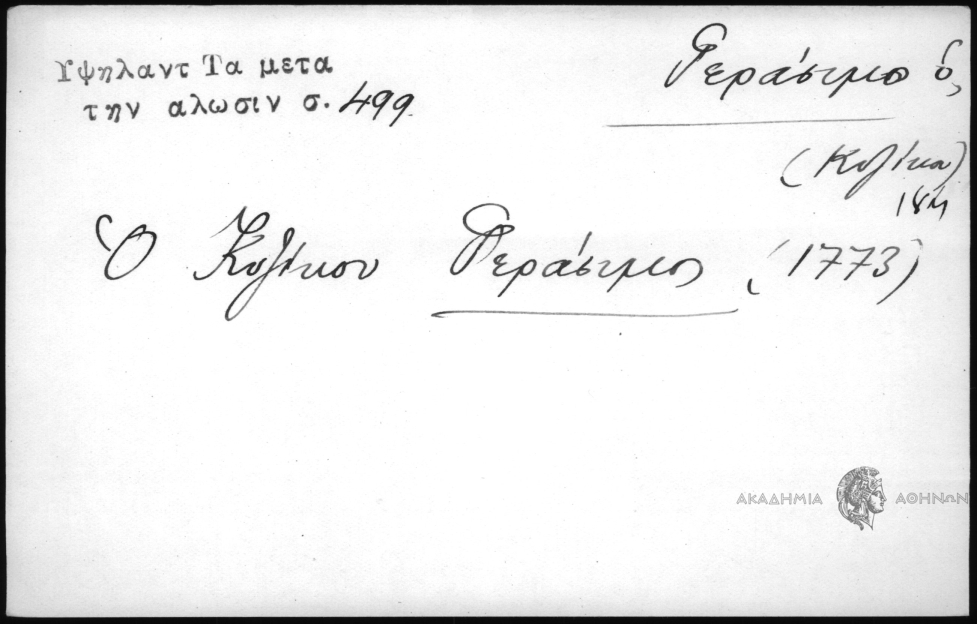 Υψηλαντ Τα μετα
την αλωσιν σ. 499
Γεράσιμο ὁ,
(Κυζίκου)
18Μ
Ὁ Κυζίκου Γεράσιμος (1773)
ΑΚΑΔΗΜΙΑ ΑΘΗΝΩΝ